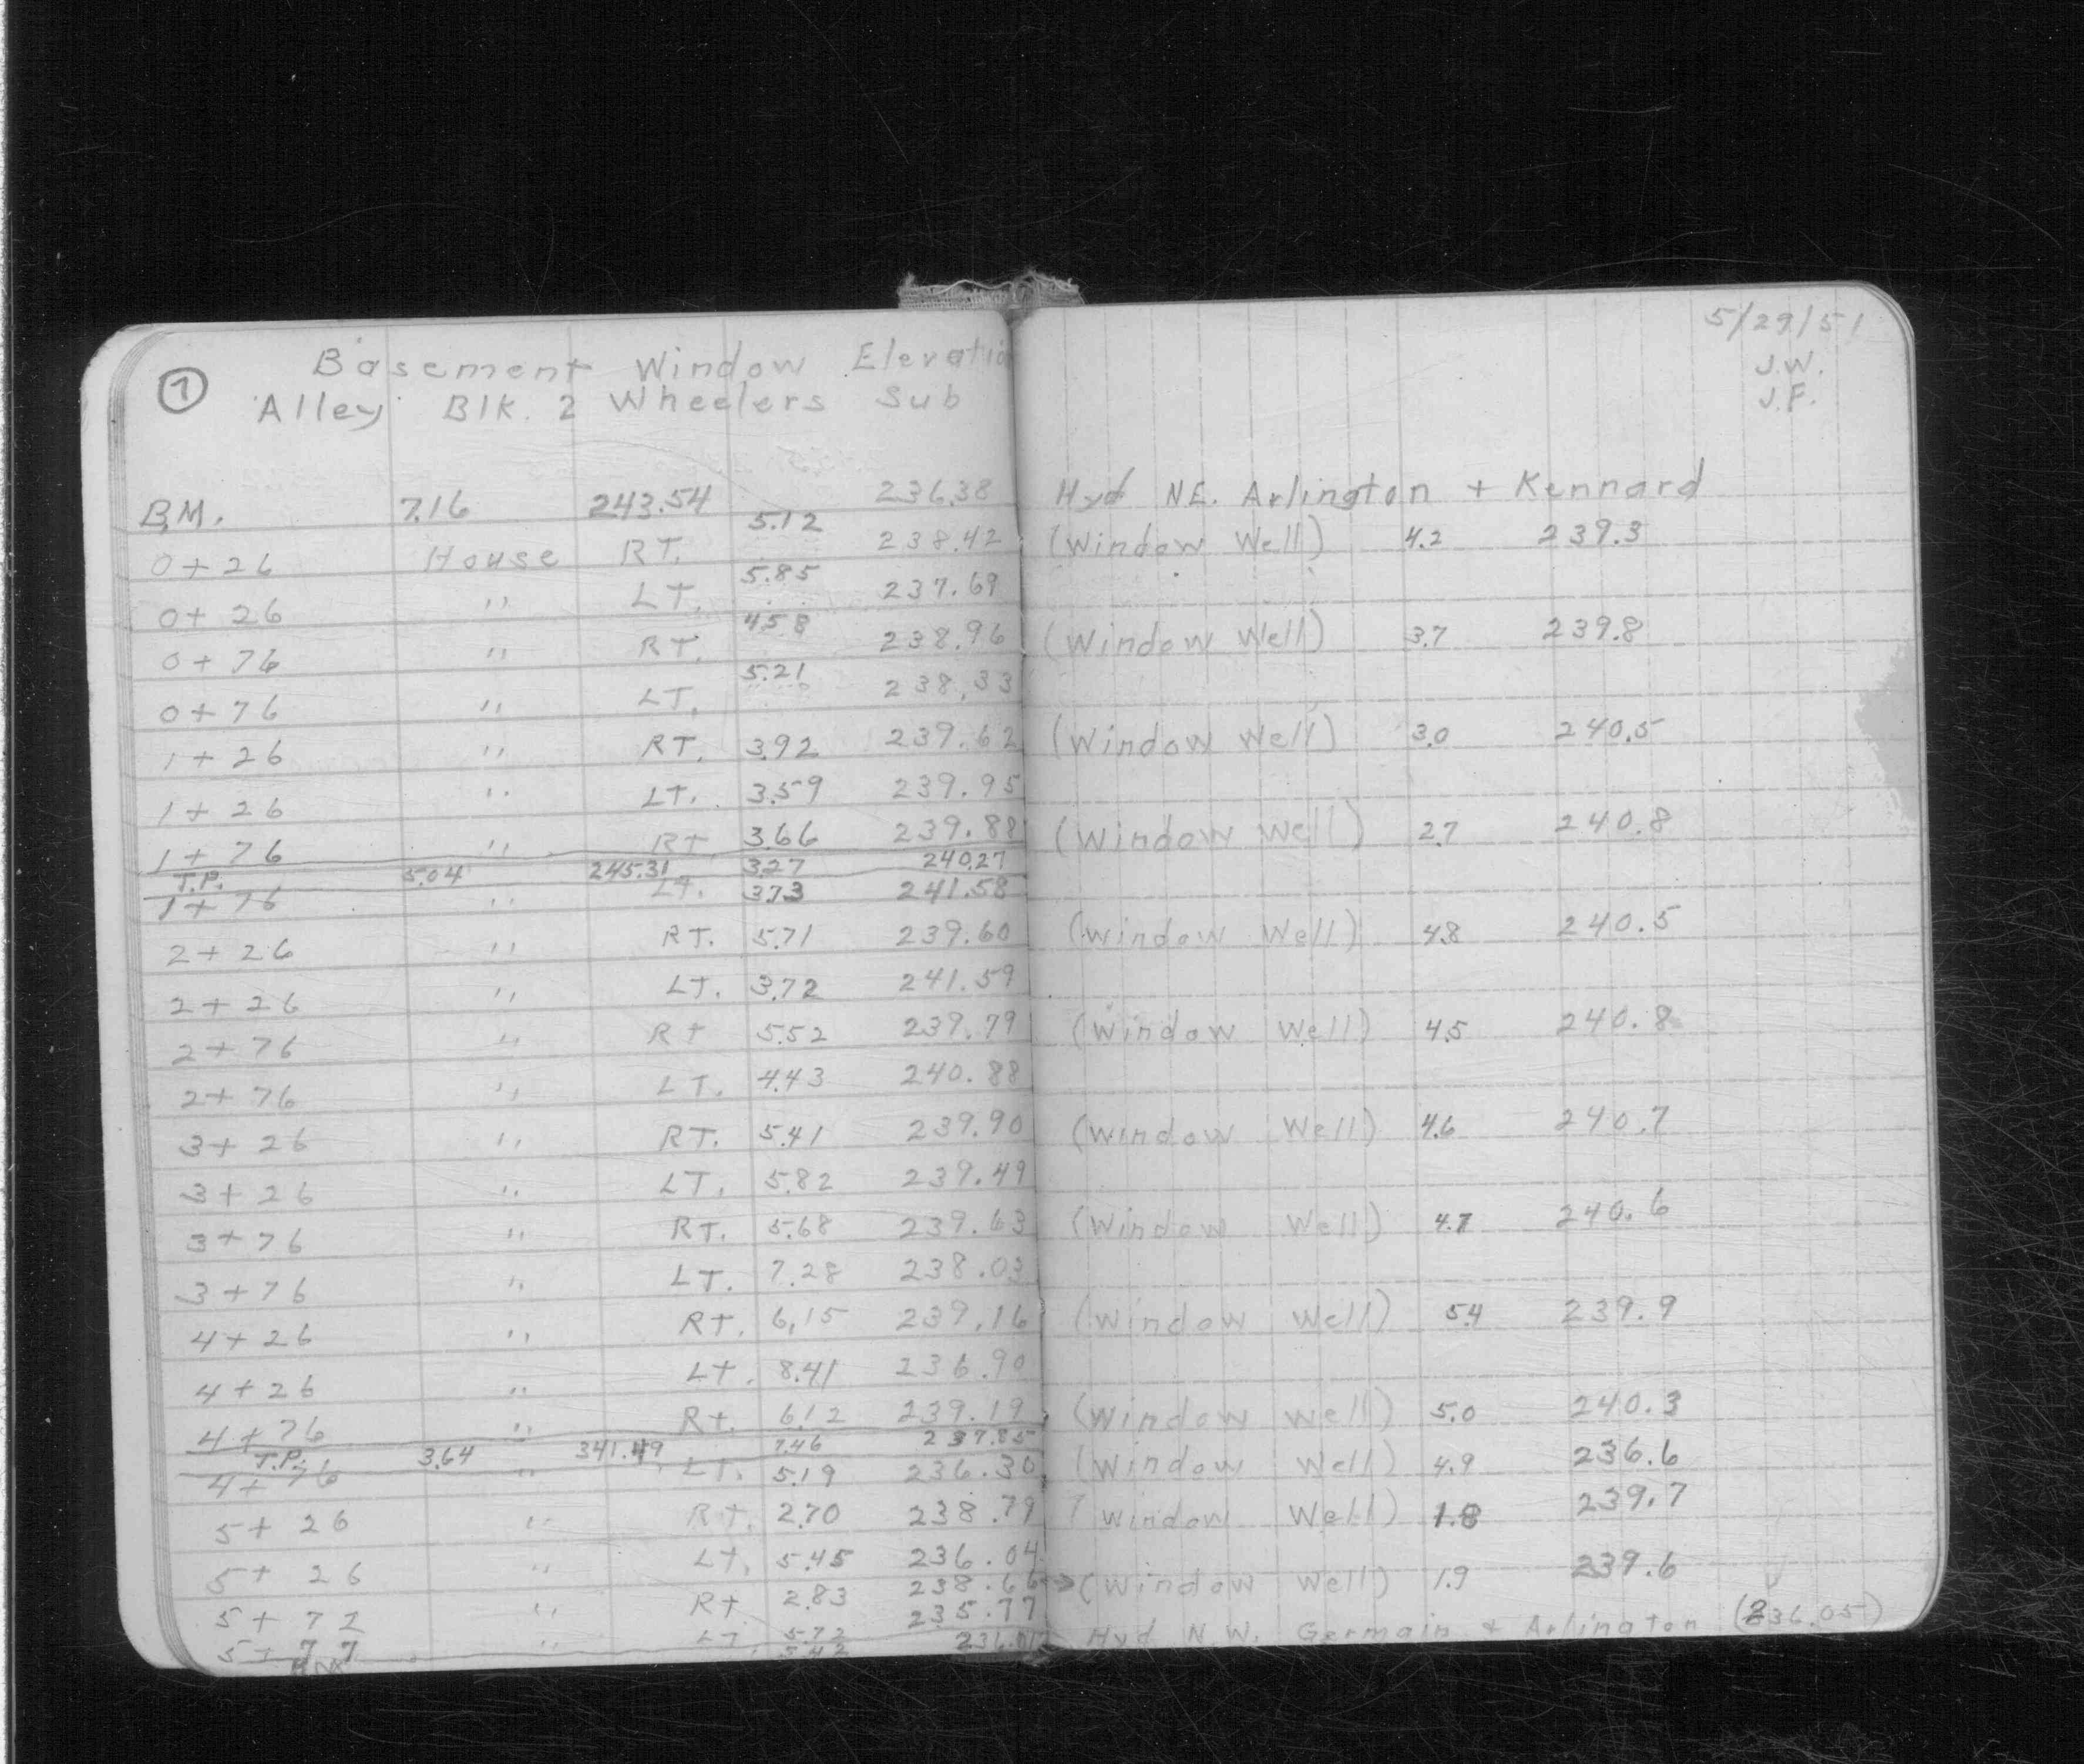 5/29/51
J.W.
J.F.
1 Basement Window Elevatio
Alley Blk. 2 Wheelers Sub
B.M. 7.16 243.54 236.38 Hyd NE. Arlington + Kennard
0+26 House RT. 5.12 238.42 (Window Well) 4.2 239.3
0+26 " LT. 5.85 237.69
0+76 " RT. 4.58 238.96 (Window Well) 3.7 239.8
0+76 " LT. 5.21 238.33
1+26 " RT. 3.92 239.62 (Window Well) 3.0 240.5
1+26 " LT. 3.59 239.95
1+76 " RT. 3.66 239.88 (Window Well) 2.7 240.8
T.P. 5.04 245.31 3.27 240.27
1+76 " LT. 3.73 241.58
2+26 " RT. 5.71 239.60 (Window Well) 4.8 240.5
2+26 " LT. 3.72 241.59
2+76 " RT 5.52 239.79 (Window Well) 4.5 240.8
2+76 " LT. 4.43 240.88
3+26 " RT. 5.41 239.90 (Window Well) 4.6 240.7
3+26 " LT. 5.82 239.49
3+76 " RT. 5.68 239.63 (Window Well) 4.7 240.6
3+76 " LT. 7.28 238.03
4+26 " RT. 6.15 239.16 (Window Well) 5.4 239.9
4+26 " LT. 8.41 236.90
4+76 " RT. 6.12 239.19 (Window Well) 5.0 240.3
T.P. 3.64 341.49 7.46 237.85
4+76 " LT. 5.19 236.30 (Window Well) 4.9 236.6
5+26 " RT. 2.70 238.79 (Window Well) 1.8 239.7
5+26 " LT. 5.45 236.04
5+72 " RT 2.83 238.66 → (Window Well) 1.9 239.6
5+77 " LT. 5.72 235.77
BM 5.42 236.07 Hyd N.W. Germain & Arlington (236.05)